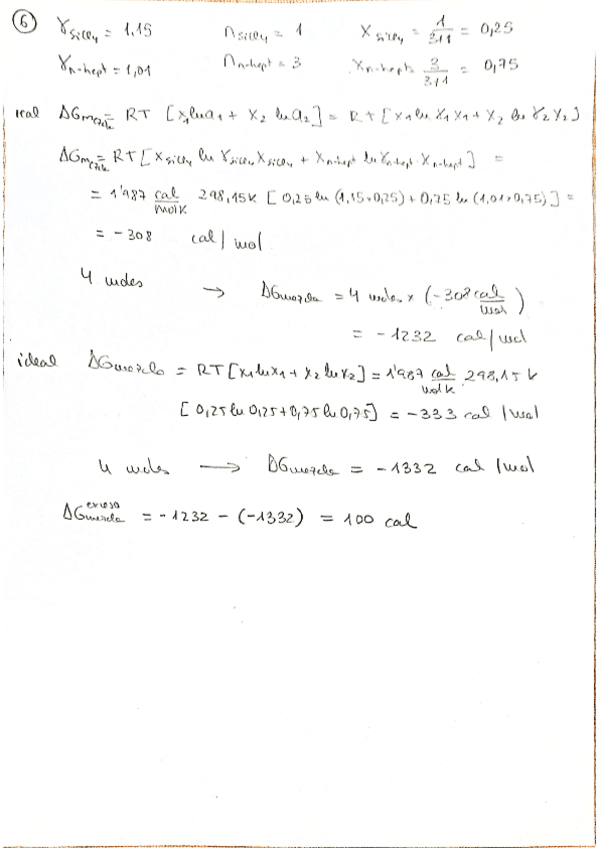 ⑥ γ_SiCl₄ = 1,15 n_SiCl₄ = 1 X_SiCl₄ = 1/3+1 = 0,25
γ_n-hept = 1,01 n_n-hept = 3 X_n-hept = 3/3+1 = 0,75
real ΔG_mezcla = RT [x₁ ln a₁ + x₂ ln a₂] = RT [x₁ ln γ₁ x₁ + x₂ ln γ₂ x₂]
ΔG_mezcla = RT [X_SiCl₄ ln γ_SiCl₄ X_SiCl₄ + X_n-hept ln γ_n-hept · X_n-hept] =
= 1'987 cal/mol K 298,15 K [0,25 ln (1,15·0,25) + 0,75 ln (1,01·0,75)] =
= -308 cal/mol
4 moles → ΔG_mezcla = 4 moles x (-308 cal/mol)
= -1232 cal/mol
ideal ΔG_mezcla = RT [x₁ ln x₁ + x₂ ln x₂] = 1'987 cal/mol K 298,15 K
[0,25 ln 0,25 + 0,75 ln 0,75] = -333 cal/mol
4 moles → ΔG_mezcla = -1332 cal/mol
ΔG_mezcla^exceso = -1232 - (-1332) = 100 cal